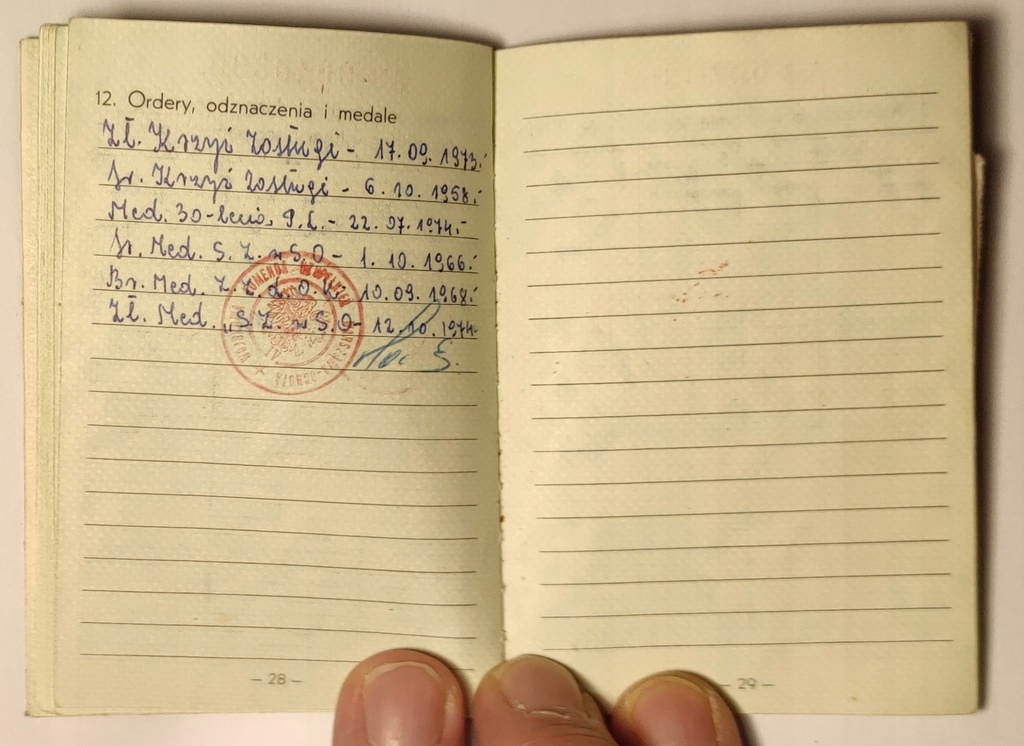 12. Ordery, odznaczenia i medale
Zł. Krzyż Zasługi - 17. 09. 1973.-
Sr. Krzyż Zasługi - 6. 10. 1958.-
Med. 30-lecia P.L. - 22. 07. 1974.-
Sr. Med. S. Z. w S. O - 1. 10. 1966.-
Br. Med. Z. Z. d. O. K. 10. 09. 1968.-
Zł. Med. S. Z. w S. O - 12. 10. 1974.-
- 28 -
- 29 -